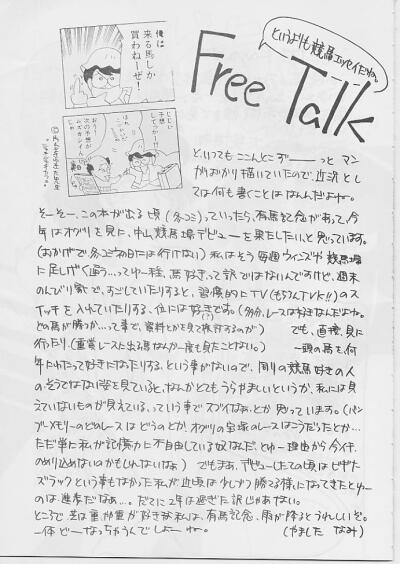 俺は
来る馬しか
買わねーぜ!
Free Talk
というよりも競馬エッセイだね。
じじい
予想
してっかー!?
おうよ
次の予想が
ムズカシイんだ
といってもここんとこずーーーっと マン
ガばかり描いていたので、近況とし
ては何も書くことはなんだよねー。
そーそー、この本が出る頃(冬コミ)っていったら、有馬記念があって、今
年はオグリを見に、中山競馬場デビューを果たしたい、と思っています。
(おかげで、冬コミ初日には行けない) 私はそう毎週ウインズや競馬場
に足しげく通う…ってゆー程、馬好きって訳ではないんですけど、週末
のんびり家で、すごしていたりすると、習慣的にTV(もちろんTVK!!)のス
イッチを入れていたりする、位には好きです。(多分、レースは好きなんだよね。
どの馬が勝つか…って事で、資料とかを見て検討するのが) でも、直接、見に
行ったり、(重賞レースに出る馬なんか一度も見たことない。) 一頭の馬を、何
年にわたって好きになったりする、という事がないので、周りの競馬好きの人
のそうではない姿を見ていると、なんかとてもうらやましいというか、私には見
えていないものが見えている、っていう事でスゴイなぁ、とか 思っています。(バン
ブーメモリーのどのレースは どうのとか、オグリの宝塚のレースはこうだったとか…
ただ単に私が記憶力に不自由している奴なんだ、とゆー理由から今イチ、
のめり込めないのかもしれないなぁ) でもまぁ、デビューしたての頃はビギナー
ズラックという事もなかった私が近頃は少しずつ勝てる様になってきたとゆー
のは進歩だなぁ…。だてに2年は過ぎた訳じゃあない。
ところで芝は重、不良が好きな私は、有馬記念、雨が降るとうれしいぞ。
一体どーなっちゃうんでしょーねー。 (やました なみ)